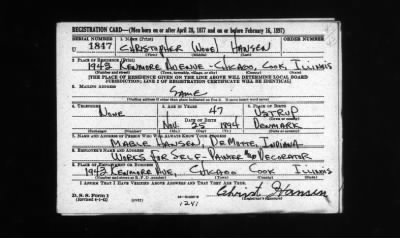 REGISTRATION CARD—(Men born on or after April 28, 1877 and on or before February 16, 1897)
SERIAL NUMBER 1. NAME (Print) ORDER NUMBER
U 1847 CHRISTOPHER (NONE) HANSEN
(First) (Middle) (Last)
2. PLACE OF RESIDENCE (Print)
1942 KENMORE AVENUE - CHICAGO, COOK, ILLINOIS
(Number and street) (Town, township, village, or city) (County) (State)
[THE PLACE OF RESIDENCE GIVEN ON THE LINE ABOVE WILL DETERMINE LOCAL BOARD
JURISDICTION; LINE 2 OF REGISTRATION CERTIFICATE WILL BE IDENTICAL]
3. MAILING ADDRESS
Same
[Mailing address if other than place indicated on line 2. If same insert word same]
4. TELEPHONE 5. AGE IN YEARS 6. PLACE OF BIRTH
NONE 47 USTRUP
DATE OF BIRTH (Town or county)
NOV. 25 1894 DENMARK
(Mo.) (Day) (Yr.) (State or country)
7. NAME AND ADDRESS OF PERSON WHO WILL ALWAYS KNOW YOUR ADDRESS
MABLE HANSEN, DEMOTTE, INDIANA
8. EMPLOYER'S NAME AND ADDRESS
WORKS FOR SELF - PAINTER AND DECORATOR
9. PLACE OF EMPLOYMENT OR BUSINESS
1942 KENMORE AVE, CHICAGO COOK ILLINOIS
(Number and street or R. F. D. number) (Town) (County) (State)
I AFFIRM THAT I HAVE VERIFIED ABOVE ANSWERS AND THAT THEY ARE TRUE.
D. S. S. Form 1
(Revised 4-1-42) (over)
Christ Hansen
(Registrant's signature)